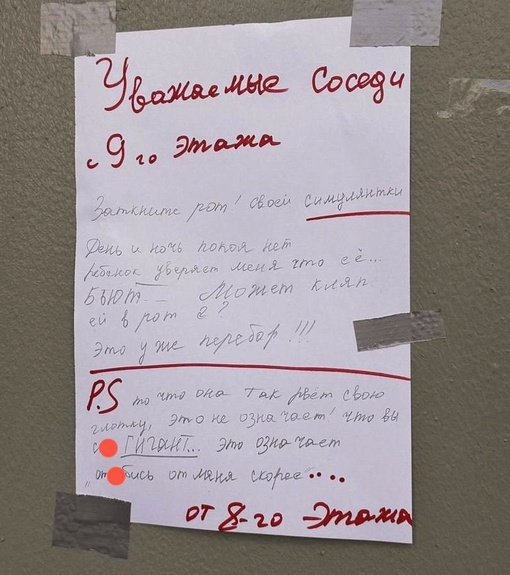 Уважаемые соседи
с 9го этажа
Заткните рот! своей симулянтки
День и ночь покоя нет
ребёнок уверяет меня что её...
БЬЮТ — Может кляп
ей в рот а?
Это уже перебор!!!
P.S то что она так рвёт свою
глотку, это не означает! что вы
ГИГАНТ... это означает
от бись от меня скорее....
от 8-го этажа